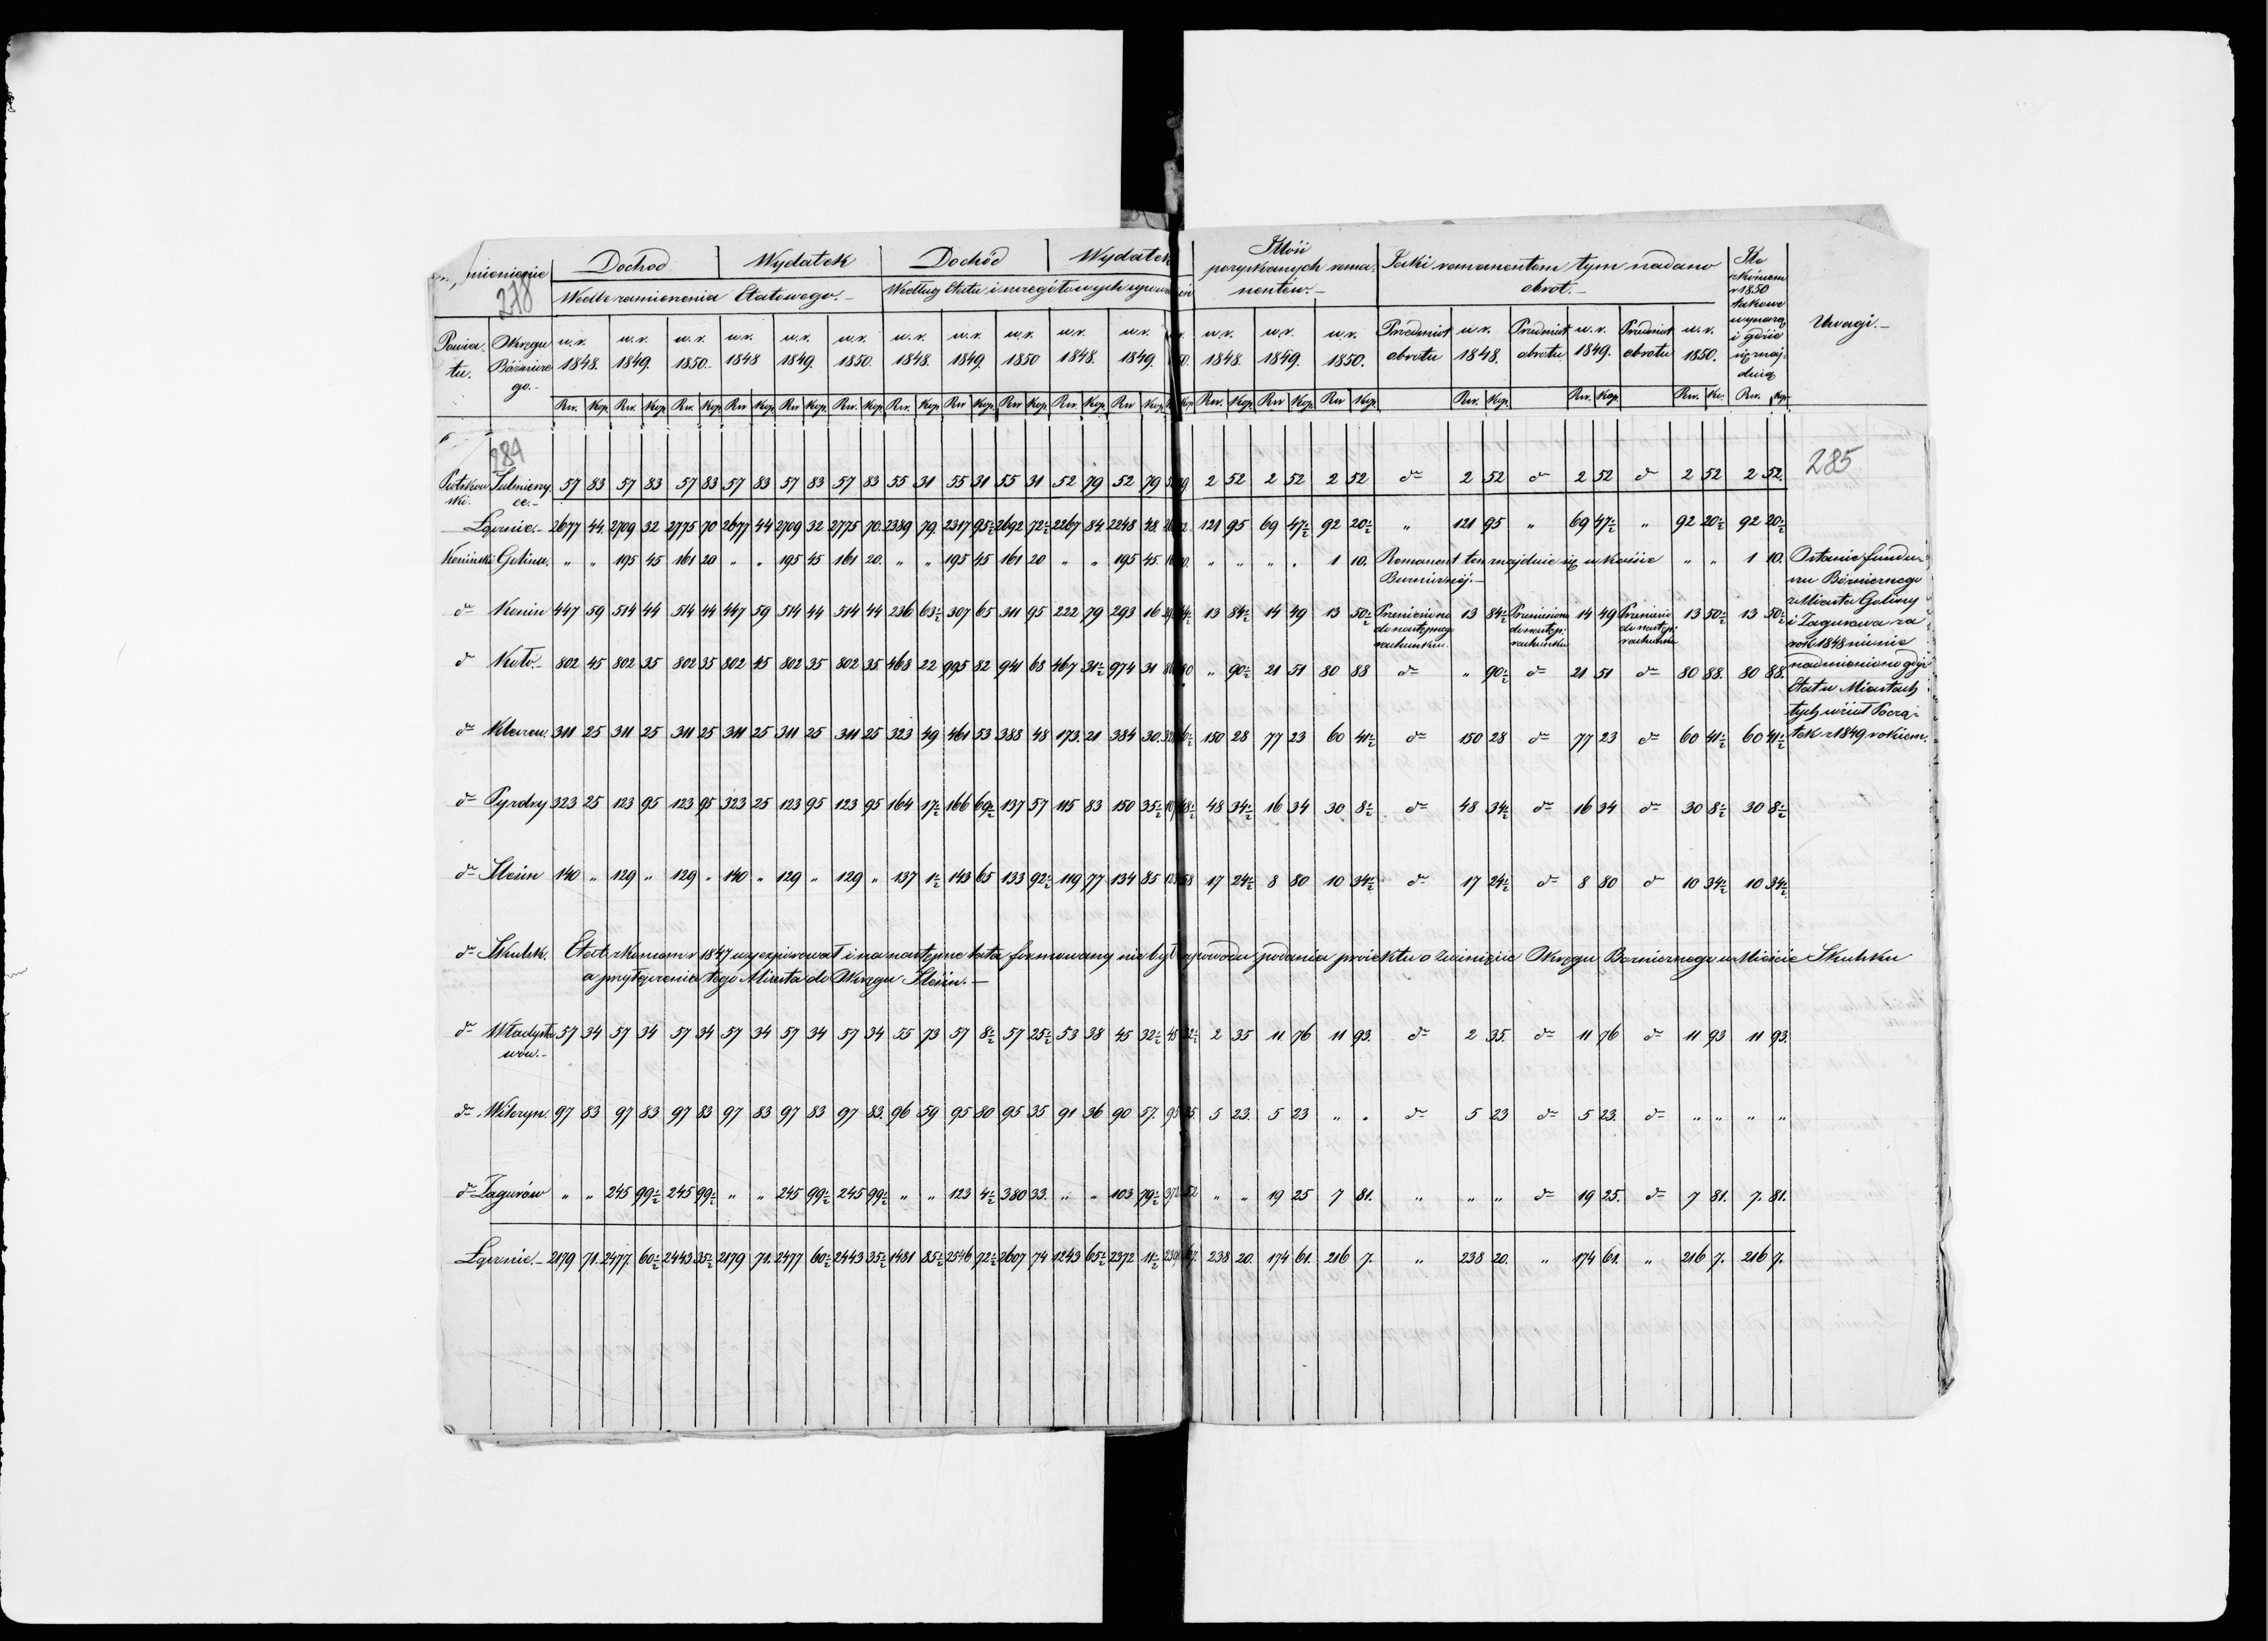 mienienie Dochod Wydatek Dochód Wydatek Ilość pozyskanych rema- Jaki remanentom tym nadano Ile
278 Wedle zamienienia Etatowego.- Według Etatu i nentów.- obrot.- z końcem r 1850 takowe wynoszą i gdzie się znaj- dują Uwagi.-
Powia- tu. Okręgu Bóżnicze go.- w.r. 1848. w.r. 1849. w.r. 1850. w.r. 1848 w.r. 1849. w.r. 1850. w.r. 1848. w.r. 1849. w.r. 1850 w.r. 1848. w.r. 1849. w.r. 1848. w.r. 1849. w.r. 1850. Przedmiot obrotu w.r. 1848. Przedmiot obrotu w.r. 1849. Przedmiot obrotu w.r. 1850.
Rsr. Kop. Rsr. Kop. Rsr. Kop. Rsr Kop. Rsr Kop. Rsr. Kop. Rsr. Kop. Rsr Kop. Rsr Kop. Rsr. Kop. Rsr Kop. Kop. Rsr. Kop. Rsr Kop. Rsr Kop. Rsr. Kop. Rsr. Kop. Rsr. Ko. Rsr. Kop.
284 285
Piotrkow ski. Sulmierzy ce.- 57 83 57 83 57 83 57 83 57 83 57 83 55 31 55 31 55 31 52 79 52 79 2 52 2 52 2 52 do 2 52 do 2 52 do 2 52 2 52.
Łącznie.- 2677 44. 2709 32 2775 70 2677 44 2709 32 2775 70. 2389 79. 2317 95½ 2692 72½ 2267 84 2248 48. 121 95 69 47½ 92 20½ " 121 95 " 69 47½ " 92 20½ 92 20½
Koniński Golina. " " 195 45 161 20 " " 195 45 161 20. " " 195 45 161 20 " " 195 45. " " " " 1 10. Remanent ten znajduie się w kassie " " 1 10. Ostanie fundu-
Bożniczéj.- szu Bóżniczego
do Konin 447 59 514 44 514 44 447 59 514 44 514 44 236 63½ 307 65 311 95 222 79 293 16 13 84½ 14 49 13 50½ Przeniesiono do następnego rachunku. 13 84½ Przeniesiono do następ: rachunku 14 49 Przeniesio do następ: rachunku 13 50½ 13 50½ z Miasta Goliny
i Zagurowa za
rok 1848 nic nie
do Koło.- 802 45 802 35 802 35 802 45 802 35 802 35 468 22 995 82 941 68 467 31½ 974 31 " 90½ 21 51 80 88 do " 90½ do 21 51 do 80 88. 80 88. nadmieniono gdyż
Etat w Miastach
tych wziął Począ-
do Kleczew. 311 25 311 25 311 25 311 25 311 25 311 25 323 49 461 53 388 48 173. 21 384 30. 150 28 77 23 60 41½ do 150 28 do 77 23 do 60 41½ 60 41½ tek z 1849 rokiem.
do Pyzdry 323 25 123 95 123 95 323 25 123 95 123 95 164 17½ 166 69½ 137 57 115 83 150 35½ 48 34½ 16 34 30 8½ do 48 34½ do 16 34 do 30 8½ 30 8½
do Slesin 140 " 129 " 129 " 140 " 129 " 129 " 137 1½ 143 65 133 92½ 119 77 134 85 17 24½ 8 80 10 34½ do 17 24½ do 8 80 do 10 34½ 10 34½
do Skulsk. Etat z koncem r 1847 wyexpirował i na następne lata formowany nie był z powodu podania proiektu o zwinięcie Okręgu Bożniczego w Mieście Skulsku
a przyłączenie tego Miasta do Okręgu Slesin.-
do Władysła wów.- 57 34 57 34 57 34 57 34 57 34 57 34 55 73 57 8½ 57 25½ 53 38 45 32½ 2 35 11 76 11 93. do 2 35. do 11 76 do 11 93 11 93.
do Wilczyn. 97 83 97 83 97 83 97 83 97 83 97 83. 96 59 95 80 95 35 91 36 90 57. 5 23. 5 23 " " do 5 23 do 5 23. do " " " "
do Zagurów " " 245 99½ 245 99½ " " 245 99½ 245 99½ " " 123 4½ 380 33. " " 103 79½ " " 19 25 7 81. " " " do 19 25. do 7 81. 7. 81.
Łącznie.- 2179 71. 2477. 60½ 2443 35½ 2179 71. 2477 60½ 2443 35½ 1481 85½ 2546 72½ 2607 74 1243 65½ 2372 11½ 238 20. 174 61. 216 7. " 238 20. " 174 61. " 216 7. 216 7.